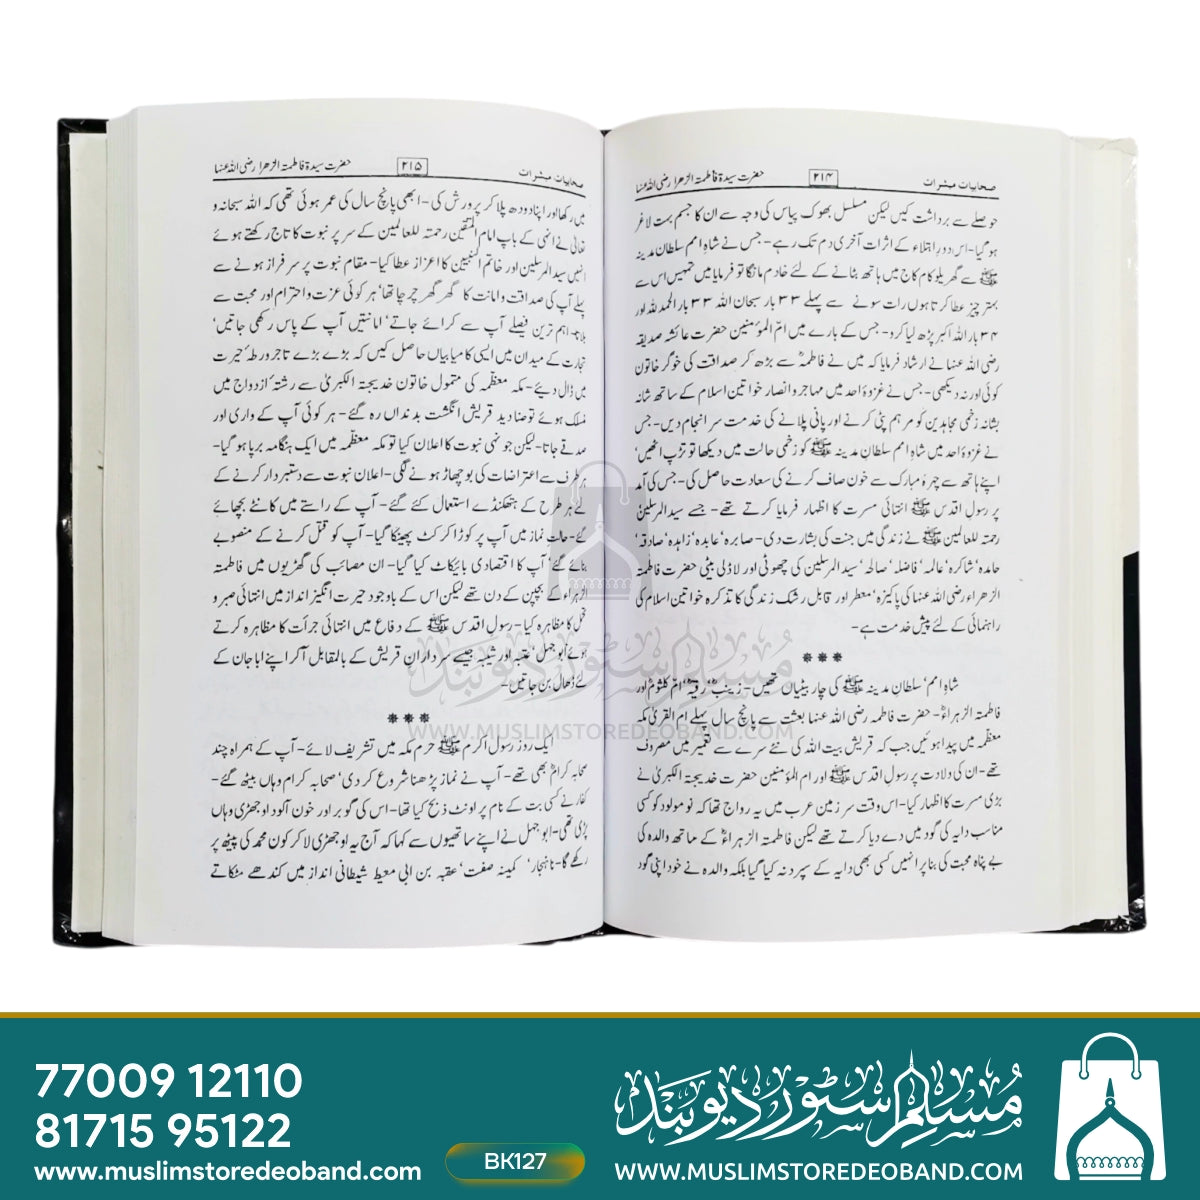 صحابیات مبشرات ۲۱۴ حضرت سیدۃ فاطمۃ الزھرا رضی اللہ عنہا
حوصلے سے برداشت کیں لیکن مسلسل بھوک پیاس کی وجہ سے ان کا جسم بہت لاغر
ہو گیا۔ اس دور ابتلاء کے اثرات آخری دم تک رہے۔ جس نے شاہ امم سلطان مدینہ
ﷺ سے گھریلو کام کاج میں ہاتھ بٹانے کے لئے خادم مانگا تو فرمایا میں تمہیں اس سے
بہتر چیز عطا کرتا ہوں رات سونے سے پہلے ۳۳ بار سبحان اللہ ۳۳ بار الحمد للہ اور
۳۴ بار اللہ اکبر پڑھ لیا کرو۔ جس کے بارے میں امّ المؤمنین حضرت عائشہ صدیقہ
رضی اللہ عنہا نے ارشاد فرمایا کہ میں نے فاطمہؓ سے بڑھ کر صداقت کی خوگر خاتون
کوئی اور نہ دیکھی۔ جس نے غزوۂ احد میں مہاجر و انصار خواتین اسلام کے ساتھ شانہ
بشانہ زخمی مجاہدین کو مرہم پٹی کرنے اور پانی پلانے کی خدمت سر انجام دیں۔ جس
نے غزوۂ احد میں شاہ امم سلطان مدینہ ﷺ کو زخمی حالت میں دیکھا تو تڑپ اٹھیں‘
اپنے ہاتھ سے چہرۂ مبارک سے خون صاف کرنے کی سعادت حاصل کی۔ جس کی آمد
پر رسول اقدس ﷺ انتہائی مسرت کا اظہار فرمایا کرتے تھے۔ جسے سید المرسلینؐ
رحمتہ للعالمین ﷺ نے زندگی میں جنت کی بشارت دی۔ صابرہ‘ عابدہ‘ زاہدہ‘ صادقہ‘
حامدہ‘ شاکرہ‘ عالمہ‘ فاضلہ‘ صالحہ‘ سید المرسلین کی چھوٹی اور لاڈلی بیٹی حضرت فاطمتہ
الزھراء رضی اللہ عنہا کی پاکیزہ‘ معطر اور قابل رشک زندگی کا تذکرہ خواتین اسلام کی
راہنمائی کے لئے پیش خدمت ہے۔
***
شاہ امم‘ سلطان مدینہ ﷺ کی چار بیٹیاں تھیں۔ زینبؓ‘ رقیہؓ‘ امّ کلثومؓ اور
فاطمتہ الزہراءؓ۔ حضرت فاطمہ رضی اللہ عنہا بعثت سے پانچ سال پہلے ام القریٰ مکہ
معظمہ میں پیدا ہوئیں جب کہ قریش بیت اللہ کی نئے سرے سے تعمیر میں مصروف
تھے۔ ان کی ولادت پر رسول اقدس ﷺ اور ام المؤمنین حضرت خدیجتہ الکبریٰ نے
بڑی مسرت کا اظہار کیا۔ اس وقت سر زمین عرب میں یہ رواج تھا کہ نو مولود کو کسی
مناسب دایہ کی گود میں دے دیا کرتے تھے لیکن فاطمتہ الزہراءؓ کے ساتھ والدہ کی
بے پناہ محبت کی بنا پر انہیں کسی بھی دایہ کے سپرد نہ کیا گیا بلکہ والدہ نے خود اپنی گود
صحابیات مبشرات ۲۱۵ حضرت سیدۃ فاطمۃ الزھرا رضی اللہ عنہا
میں رکھا اور اپنا دودھ پلا کر پرورش کی۔ ابھی پانچ سال کی عمر ہوئی تھی کہ اللہ سبحانہ و
تعالیٰ نے انھی کے باپ امام المتقین رحمتہ للعالمین کے سر پر نبوت کا تاج رکھتے ہوئے
انہیں سید المرسلین اور خاتم النبیین کا اعزاز عطا کیا۔ مقام نبوت پر سرفراز ہونے سے
پہلے آپ کی صداقت و امانت کا گھر گھر چرچا تھا‘ ہر کوئی عزت و احترام اور محبت سے
بلاتا۔ اہم ترین فیصلے آپ سے کرائے جاتے‘ امانتیں آپ کے پاس رکھی جاتیں‘
تجارت کے میدان میں ایسی کامیابیاں حاصل کیں کہ بڑے بڑے تاجر ورطۂ حیرت
میں ڈال دیئے۔ مکہ معظمہ کی متمول خاتون خدیجتہ الکبریٰ سے رشتہ ازدواج میں
منسلک ہوئے تو صنادید قریش انگشت بدنداں رہ گئے۔ ہر کوئی آپ کے واری اور
صدقے جاتا۔ لیکن جونہی نبوت کا اعلان کیا تو مکہ معظمہ میں ایک ہنگامہ برپا ہو گیا۔
ہر طرف سے اعتراضات کی بوچھاڑ ہونے لگی۔ اعلان نبوت سے دستبردار کرنے کے
لئے ہر طرح کے ہتھکنڈے استعمال کئے گئے۔ آپ کے راستے میں کانٹے بچھائے
گئے۔ حالت نماز میں آپ پر کوڑا کرکٹ پھینکا گیا۔ آپ کو قتل کرنے کے منصوبے
بنائے گئے‘ آپ کا اقتصادی بائیکاٹ کیا گیا۔ ان مصائب کی گھڑیوں میں فاطمتہ
الزہراءؓ کے بچپن کے دن تھے لیکن اس کے باوجود حیرت انگیز انداز میں انتہائی صبر و
تحمل کا مظاہرہ کیا۔ رسول اقدس ﷺ کے دفاع میں انتہائی جرأت کا مظاہرہ کرتے
ہوئے ابو جہل‘ عتبہ اور شیبہ جیسے سرداران قریش کے بالمقابل آ کر اپنے ابا جان کے
لئے ڈھال بن جاتیں۔
***
ایک روز رسول اکرم ﷺ حرم مکہ میں تشریف لائے۔ آپ کے ہمراہ چند
صحابہ کرامؓ بھی تھے۔ آپ نے نماز پڑھنا شروع کر دی‘ صحابہ کرام وہاں بیٹھ گئے۔
کفار نے کسی بت کے نام پر اونٹ ذبح کیا تھا۔ اس کی گوبر اور خون آلود اوجھڑی وہاں
پڑی تھی۔ ابو جہل نے اپنے ساتھیوں سے کہا کہ آج یہ اوجھڑی لا کر کون محمد کی پیٹھ پر
رکھے گا۔ ناہنجار‘ کمینہ صفت‘ عقبہ بن ابی معیط شیطانی انداز میں کندھے مٹکاتے
مسلم سٹور دیوبند
WWW.MUSLIMSTOREDEOBAND.COM
77009 12110
81715 95122
www.muslimstoredeoband.com
BK127
مسلم سٹور دیوبند
WWW.MUSLIMSTOREDEOBAND.COM